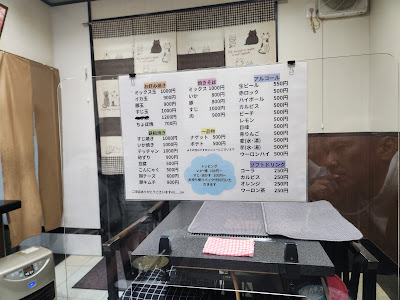 お好み焼き
ミックス玉 1000円
イカ玉 900円
豚玉 900円
すじ玉 1000円
1200円
ちょぼ焼 700円
鉄板焼き
すじ焼き 1000円
いか焼き 1000円
テッチャン 1000円
砂ずり 900円
豆腐
こんにゃく 500円
豚チーズ 600円
豚キムチ
焼きそば
ミックス 1000円
いか 900円
豚 800円
すじ 1000円
肉
一品物
ナゲット 500円
ポテト 500円
トッピング
アルコール
生ビール 550円
ホロック 500円
ハイボール 500円
カルピス 500円
ピーチ 500円
レモン 500円
白桃 500円
青りんご 500円
麦(水・湯) 500円
芋(水・湯) 500円
ウーロンハイ 500円
ソフトドリンク
コーラ 250円
カルピス 250円
オレンジ 250円
ウーロン茶 250円